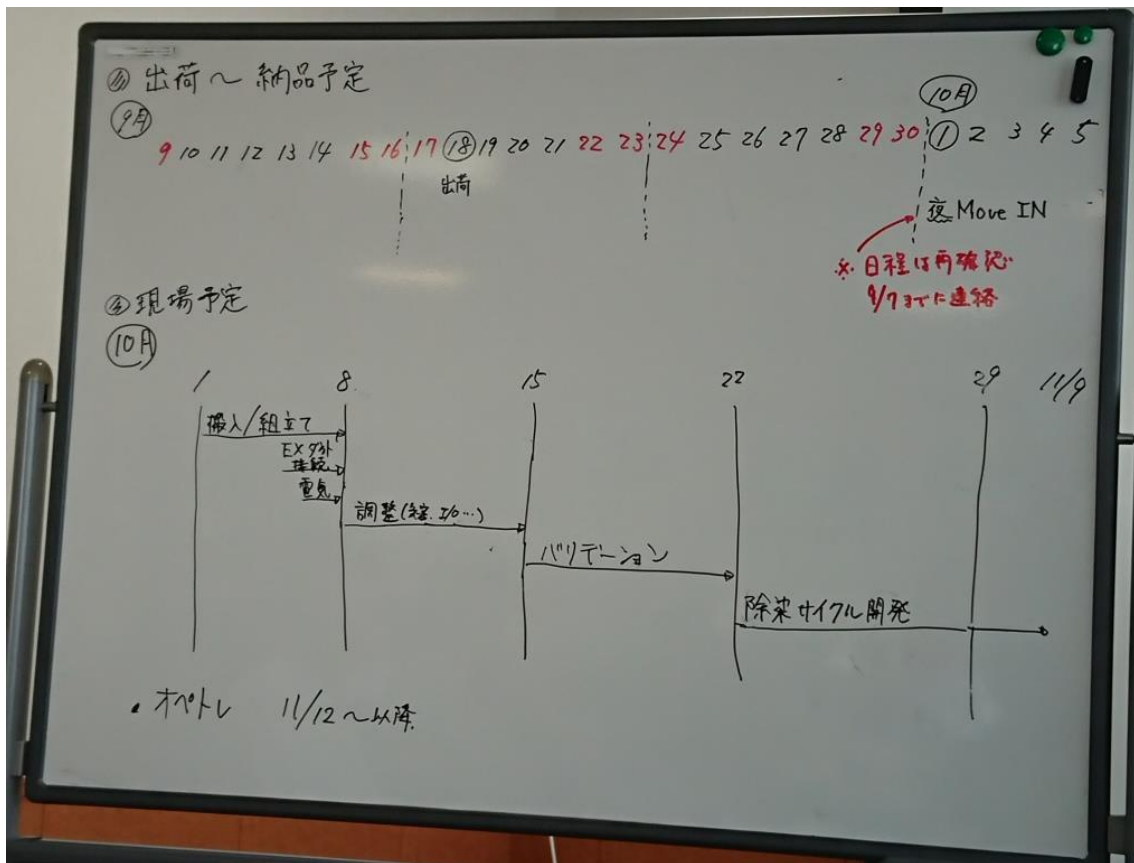 出荷～納品予定
9月
10月
9 10 11 12 13 14 15 16 17 18 19 20 21 22 23 24 25 26 27 28 29 30 1 2 3 4 5
出荷
夜 Move IN
※ 日程は再確認
9/7までに連絡
現場予定
10月
1 8 15 22 29 11/9
搬入/組立て
EXダクト
接続
電気
調整( I/O…)
バリデーション
除染サイクル開発
・オペトレ 11/12～以降